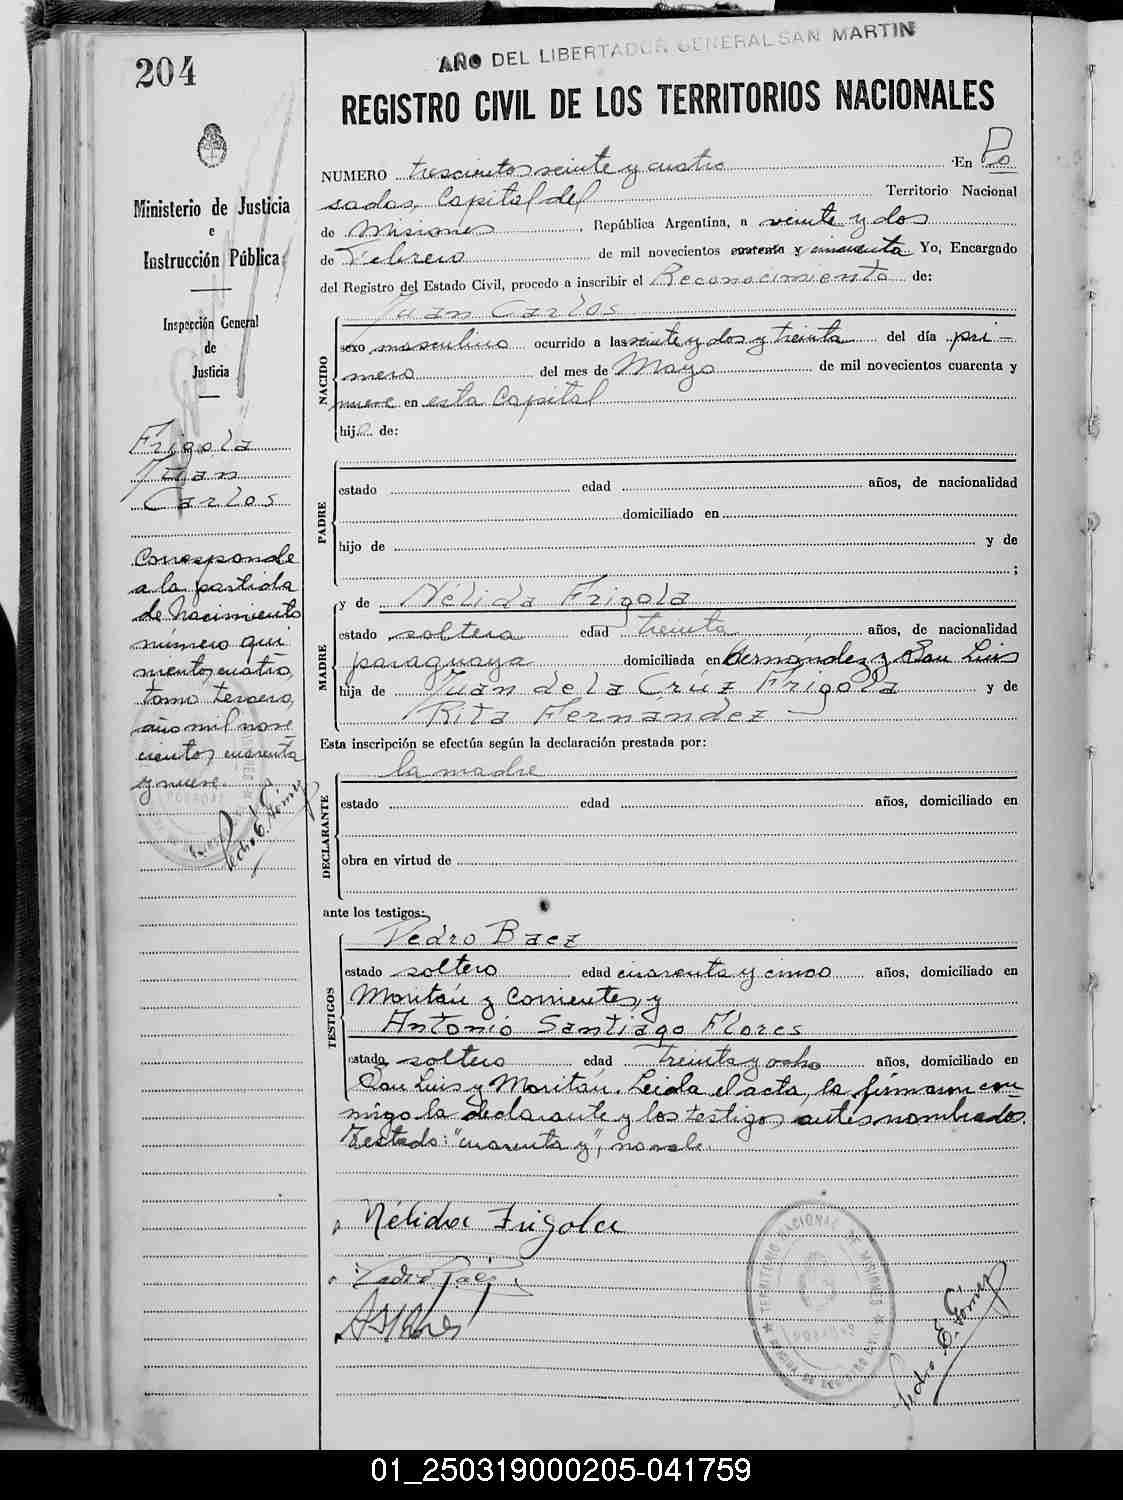 AÑO DEL LIBERTADOR GENERAL SAN MARTIN
204
REGISTRO CIVIL DE LOS TERRITORIOS NACIONALES
Ministerio de Justicia
e
Instrucción Pública
Inspección General
de
Justicia
Frigola
Juan
Carlos
Corresponde
a la partida
de Nacimiento
número qui
nientos cuatro,
tomo tercero,
año mil nove
cientos cuarenta
y nueve.
Pedro E. Gómez
NUMERO trescientos veinte y cuatro En Po
sadas, Capital del Territorio Nacional
de Misiones, República Argentina, a veinte y dos
de Febrero de mil novecientos cuarenta y cincuenta Yo, Encargado
del Registro del Estado Civil, procedo a inscribir el Reconocimiento de:
Juan Carlos
NACIDO
sexo masculino ocurrido a las veinte y dos y treinta del día pri-
mero del mes de Mayo de mil novecientos cuarenta y
nueve en esta Capital
hijo de:
PADRE
estado edad años, de nacionalidad
domiciliado en
hijo de y de
;
MADRE
y de Nélida Frigola
estado soltera edad treinta años, de nacionalidad
paraguaya domiciliada en Hernández y San Luis
hija de Juan de la Cruz Frigola y de
Rita Fernández
Esta inscripción se efectúa según la declaración prestada por:
DECLARANTE
la madre
estado edad años, domiciliado en
obra en virtud de
ante los testigos:
TESTIGOS
Pedro Baez
estado soltero edad cuarenta y cinco años, domiciliado en
Moritán y Corrientes, y
Antonio Santiago Flores
estado soltero edad treinta y ocho años, domiciliado en
San Luis y Moritán. Leida el acta, la firmaron con-
migo la declarante y los testigos antes nombrados.
Testado: "cuarenta y", no vale.
Nélida Frigola
Pedro Baez
TERRITORIO NACIONAL DE MISIONES
POSADAS
Pedro E. Gómez
01_250319000205-041759